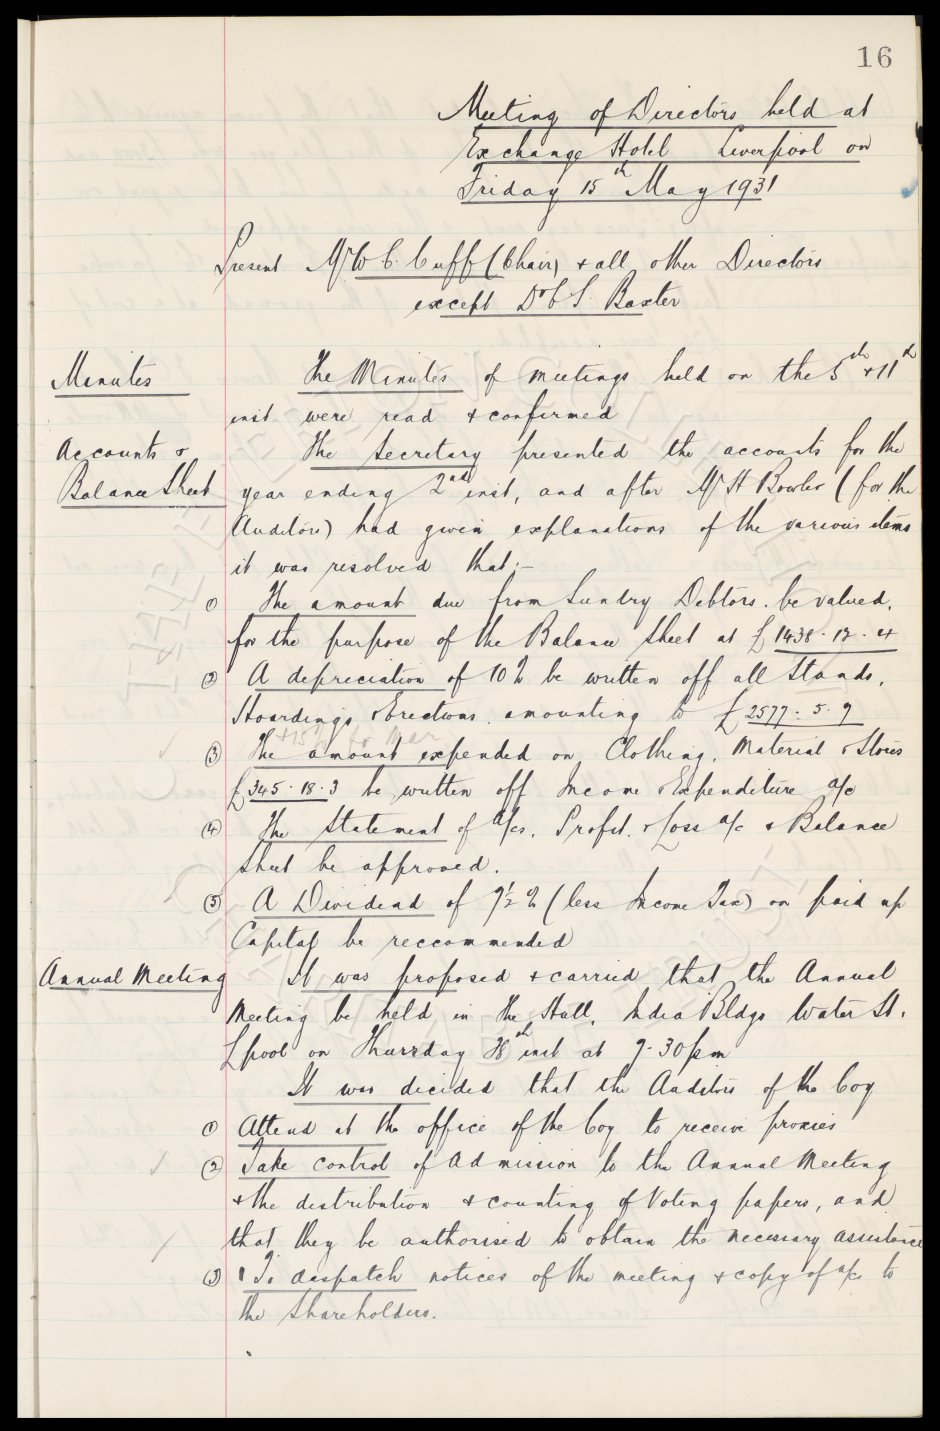 16
Meeting of Directors held at
Exchange Hotel Liverpool on
Friday 15th May 1931
Present Mr W C. Cuff (Chair) & all other Directors
except Dr C S. Baxter
Minutes The Minutes of meetings held on the 5th & 11th
inst were read & confirmed
Accounts & The Secretary presented the accounts for the
Balance Sheet year ending 2nd inst, and after Mr H Bowler (for the
Auditors) had given explanations of the various items
it was resolved that:-
① The amount due from Sundry Debtors. be valued,
for the purpose of the Balance Sheet at £1438. 12. 4
② A depreciation of 10% be written off all Stands,
Hoardings & Erections. amounting to £2577: 5. 9
③ The amount expended on Clothing, Material & Stores
£345. 18. 3 be written off Income & Expenditure a/c
④ The Statement of a/cs, Profit. & Loss a/c & Balance
Sheet be approved.
⑤ A Dividend of 7½% (less Income Tax) on paid up
Capital be reccommended
Annual Meeting It was proposed & carried that the Annual
Meeting be held in the Hall, India Bldgs Water St.
Lpool on Thursday 28th inst at 7-30pm
It was decided that the Auditors of the Coy
① Attend at the office of the Coy to receive proxies
② Take control of admission to the Annual Meeting
& the distribution & counting of Voting papers, and
that they be authorised to obtain the necessary assistance
③ To despatch notices of the meeting & copy of a/cs to
the Shareholders.